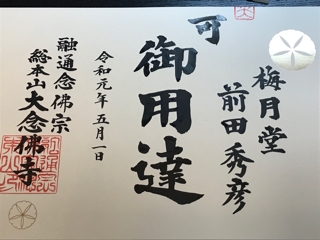 梅月堂
前田秀彦
可
御用達
令和元年五月一日
融通念佛宗
総本山大念佛寺